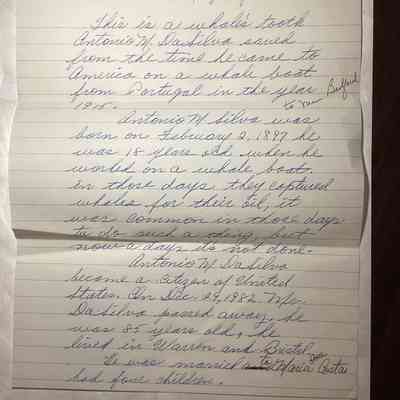 This is a whale's tooth
Antonio M. DaSilva saved
from the time he came to
America on a whale boat
from Portugal in the year
1915. to New Bedford
Antonio M Silva was
born on February 2, 1897 he
was 18 years old when he
worked on a whale boat.
in those days they captured
whales for their oil, it
was common in those days
to do such a thing, but
now a days it's not done.
Antonio M DaSilva
become a citizen of United
States. On Dec. 29, 1982 Mr.
DaSilva passed away, he
was 85 years old, he
lived in Warren and Bristol
He was married to Maria Costa
had four children.